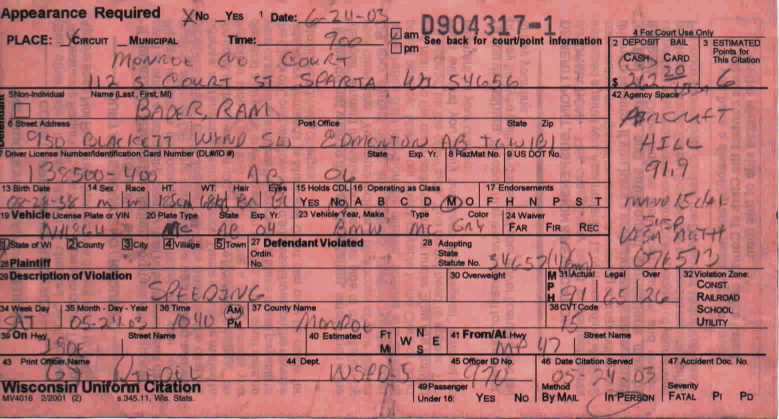 Appearance Required X No _Yes 1 Date: 6-24-03 D904317-1
PLACE: X Circuit _ Municipal Time: 900 am pm See back for court/point information
4 For Court Use Only
2 DEPOSIT BAIL 3 ESTIMATED Points for This Citation
CASH CARD
$ 212 20 6
MONROE CO COURT
112 S COURT ST SPARTA WI 54656
Defendant
5 Non-Individual Name (Last, First, MI)
BADER, RAM
42 Agency Space
AIRCRAFT
HILL
91.9
6 Street Address Post Office State Zip
950 BLACKETT WYND SW EDMONTON AB T6W1B1
7 Driver License Number/Identification Card Number (DL#/ID #) State Exp. Yr. 8 HazMat No. 9 US DOT No.
138500-400 AB 06
13 Birth Date 14 Sex Race HT. WT. Hair Eyes 15 Holds CDL 16 Operating as Class 17 Endorsements
08-28-58 M W YES NO A B C D M O F H N P S T
19 Vehicle License Plate or VIN 20 Plate Type State Exp. Yr. 23 Vehicle Year, Make Type Color 24 Waiver
MC AB 04 BMW MC GRY FAR FIR REC
VISA AUTH
076573
1 State of WI 2 County 3 City 4 Village 5 Town 27 Defendant Violated Ordin. No. 28 Adopting State Statute No.
Plaintiff
29 Description of Violation 30 Overweight MPH 31 Actual Legal Over 32 Violation Zone:
SPEEDING 91 65 26
CONST.
RAILROAD
SCHOOL
UTILITY
34 Week Day 35 Month - Day - Year 36 Time AM PM 37 County Name 38 CVT Code
SAT 05-24-03 1040 MONROE 15
39 On Hwy Street Name 40 Estimated FT MI N W E S 41 From/At Hwy Street Name
MP 47
43 Print Officer Name 44 Dept. 45 Officer ID No. 46 Date Citation Served 47 Accident Doc. No.
WSPD-5 970 05-24-03
Wisconsin Uniform Citation 49 Passenger Under 16: YES NO Method By MAIL In PERSON Severity FATAL PI PD
MV4016 2/2001 (2) s.345.11, Wis. Stats.